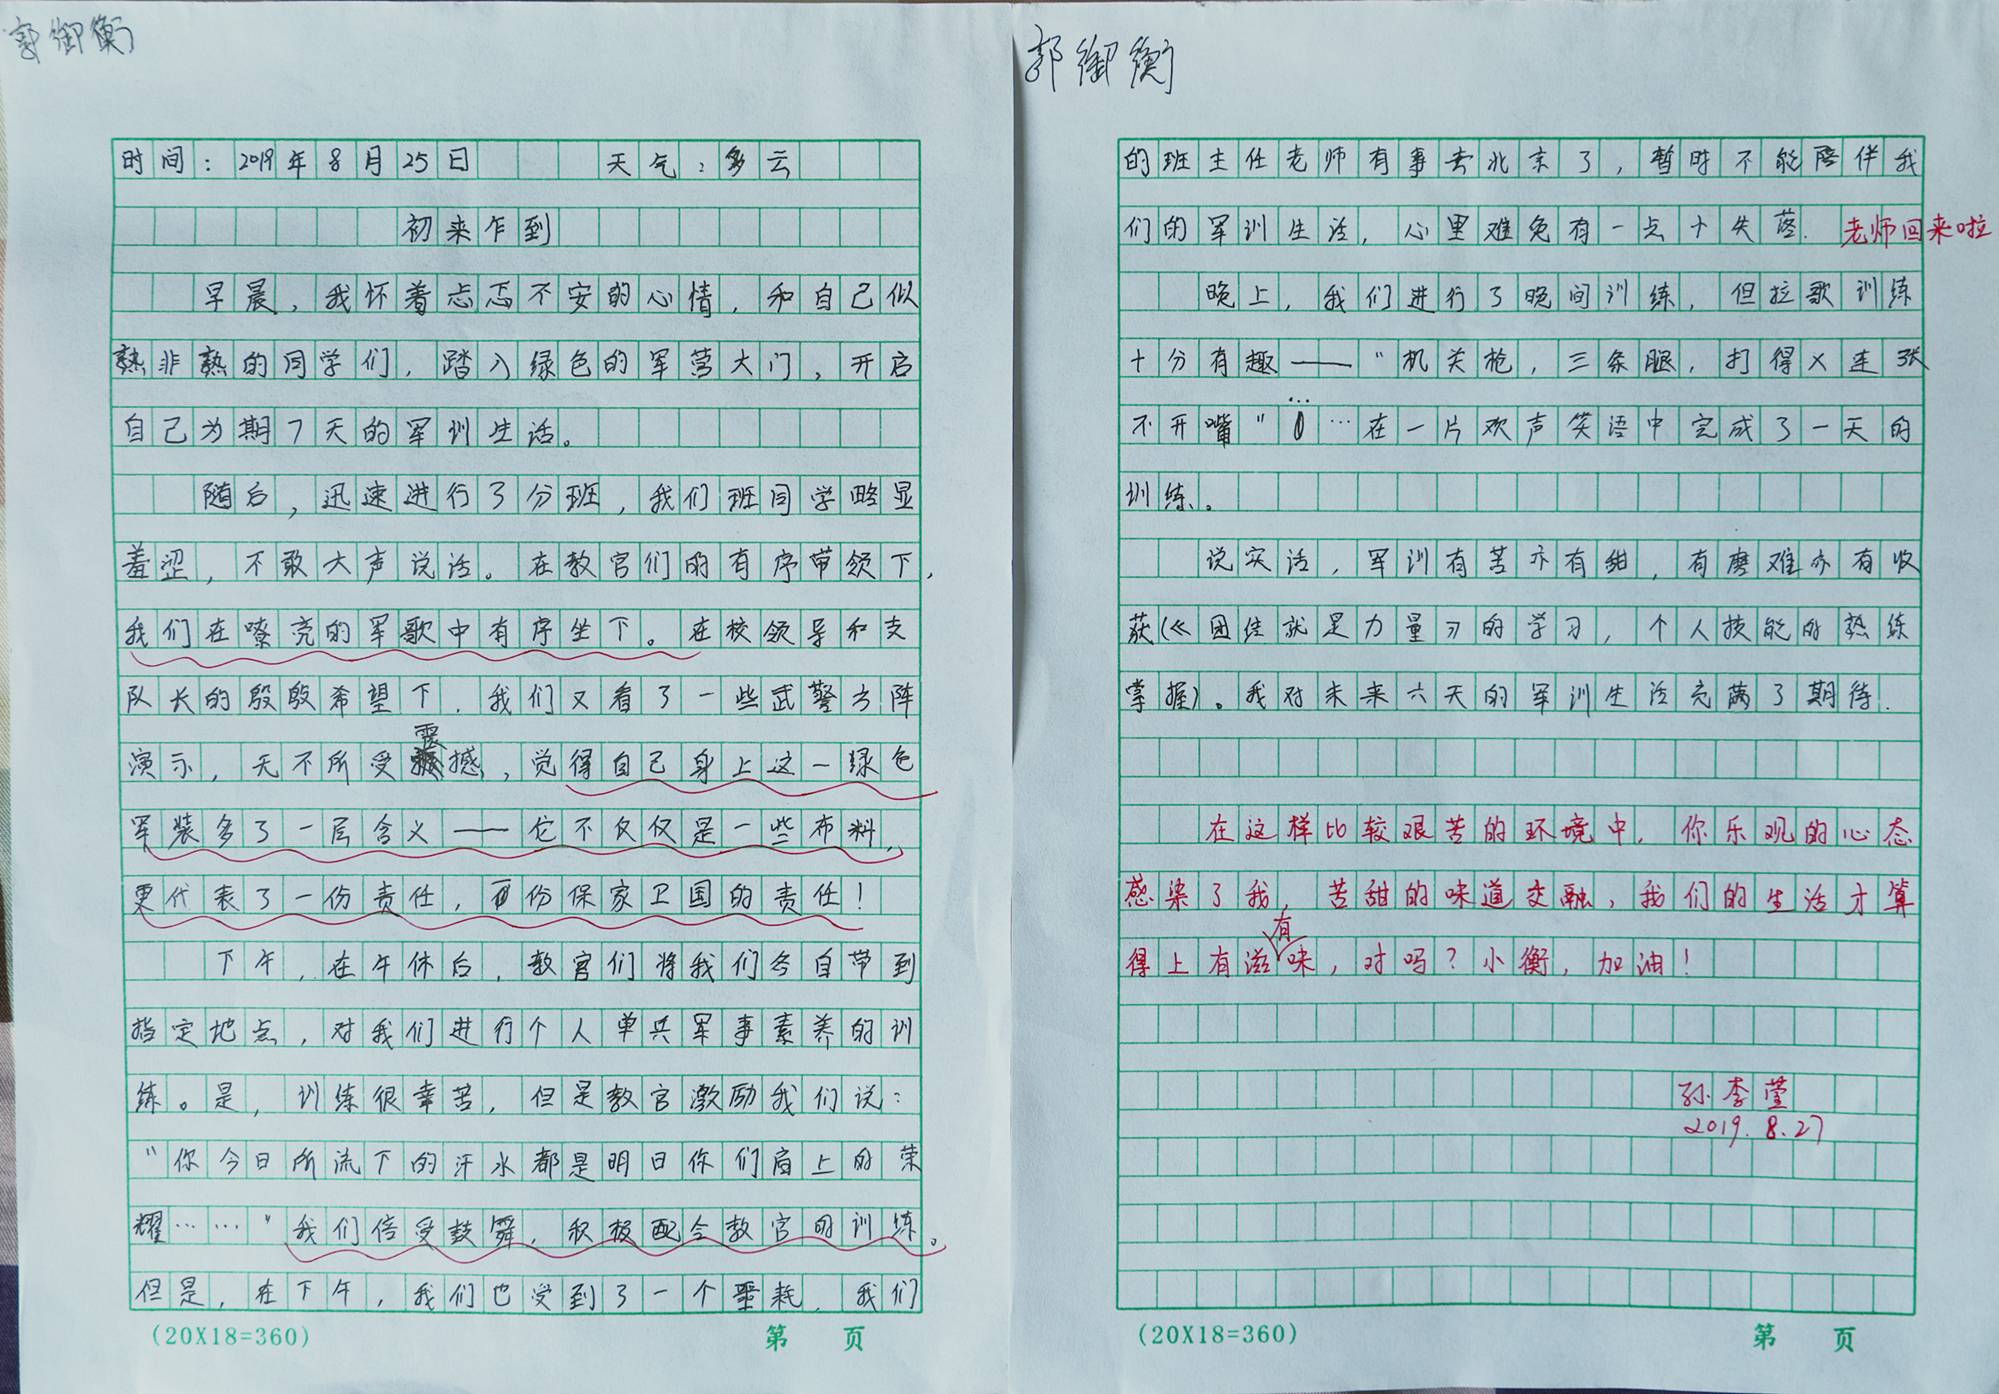 郭御衡
时间：2019年8月25日 天气：多云
初来乍到
早晨，我怀着忐忑不安的心情，和自己似
熟非熟的同学们，踏入绿色的军营大门，开启
自己为期7天的军训生活。
随后，迅速进行了分班，我们班同学略显
羞涩，不敢大声说话。在教官们的有序带领下，
我们在嘹亮的军歌中有序坐下。在校领导和支
队长的殷殷希望下，我们又看了一些武警方阵
演示，无不所受震撼，觉得自己身上这一绿色
军装多了一层含义——它不仅仅是一些布料，
更代表了一份责任，一份保家卫国的责任！
下午，在午休后，教官们将我们各自带到
指定地点，对我们进行个人单兵军事素养的训
练。是，训练很辛苦，但是教官激励我们说：
“你今日所流下的汗水都是明日你们肩上的荣
耀……”我们倍受鼓舞，积极配合教官的训练。
但是，在下午，我们也受到了一个噩耗，我们
(20X18=360) 第 页
郭御衡
的班主任老师有事去北京了，暂时不能陪伴我
们的军训生活，心里难免有一点十失落. 老师回来啦
晚上，我们进行了晚间训练，但拉歌训练
十分有趣——“机关枪，三条腿，打得X连张
不开嘴”……在一片欢声笑语中完成了一天的
训练。
说实话，军训有苦亦有甜，有磨难亦有收
获(《团结就是力量》的学习，个人技能的熟练
掌握)。我对未来六天的军训生活充满了期待.
在这样比较艰苦的环境中，你乐观的心态
感染了我，苦甜的味道交融，我们的生活才算
得上有滋有味，对吗？小衡，加油！
孙李莹
2019.8.27
(20X18=360) 第 页